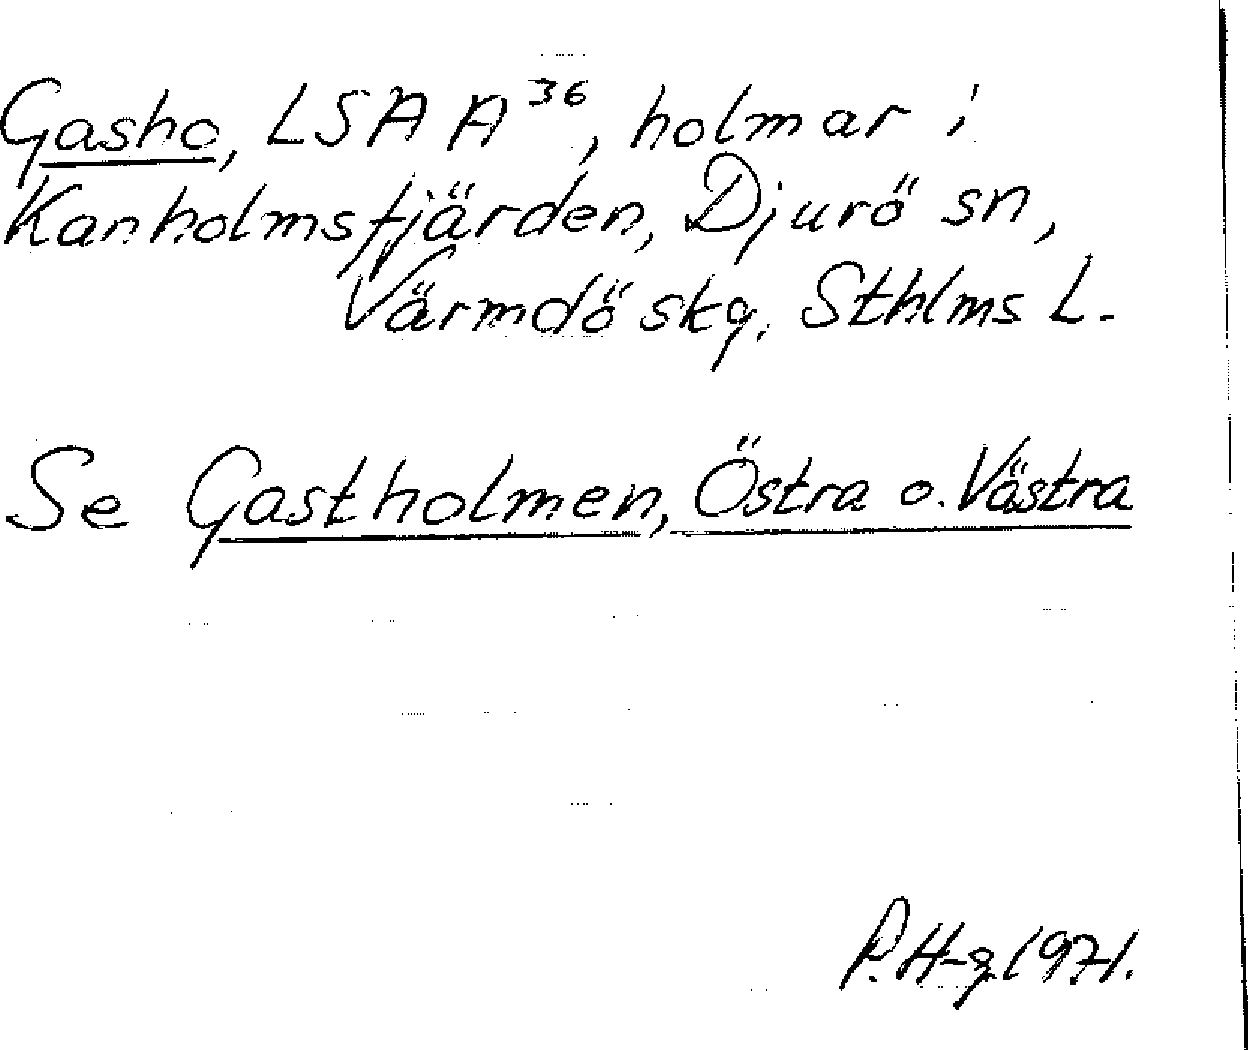 Gasho, LSA A36, holmar i
Kanholmsfjärden, Djurö sn,
Värmdö skg, Sthlms L.
Se Gastholmen, Östra o. Västra
P. H-g 1971.